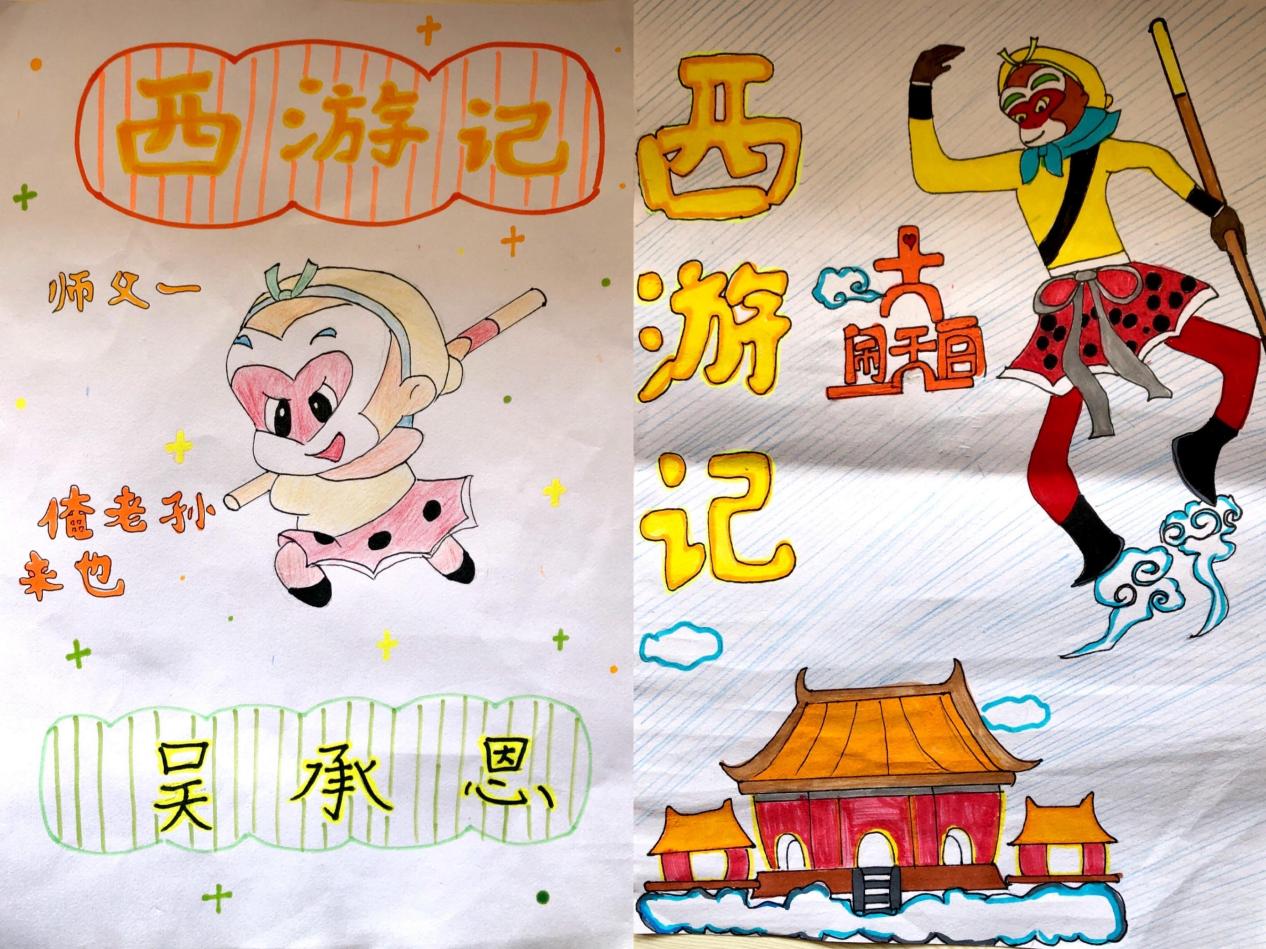 西游记
师父一
俺老孙
来也
吴承恩
西
游
记
大
闹天宫